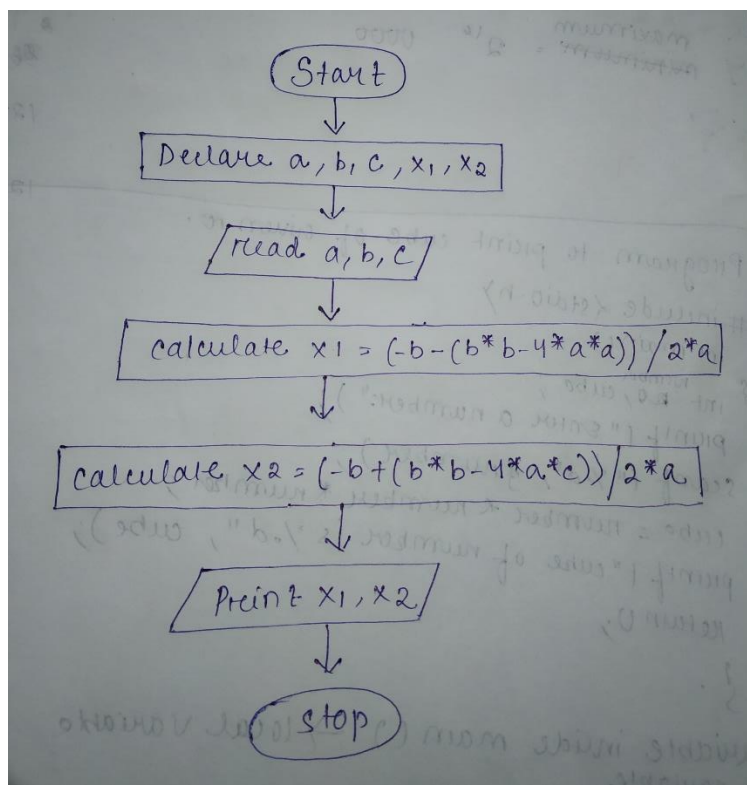 Start
Declare a, b, c, x1, x2
read a, b, c
calculate x1 = (-b-(b*b-4*a*a))/2*a
calculate x2 = (-b+(b*b-4*a*c))/2*a
Print x1, x2
stop